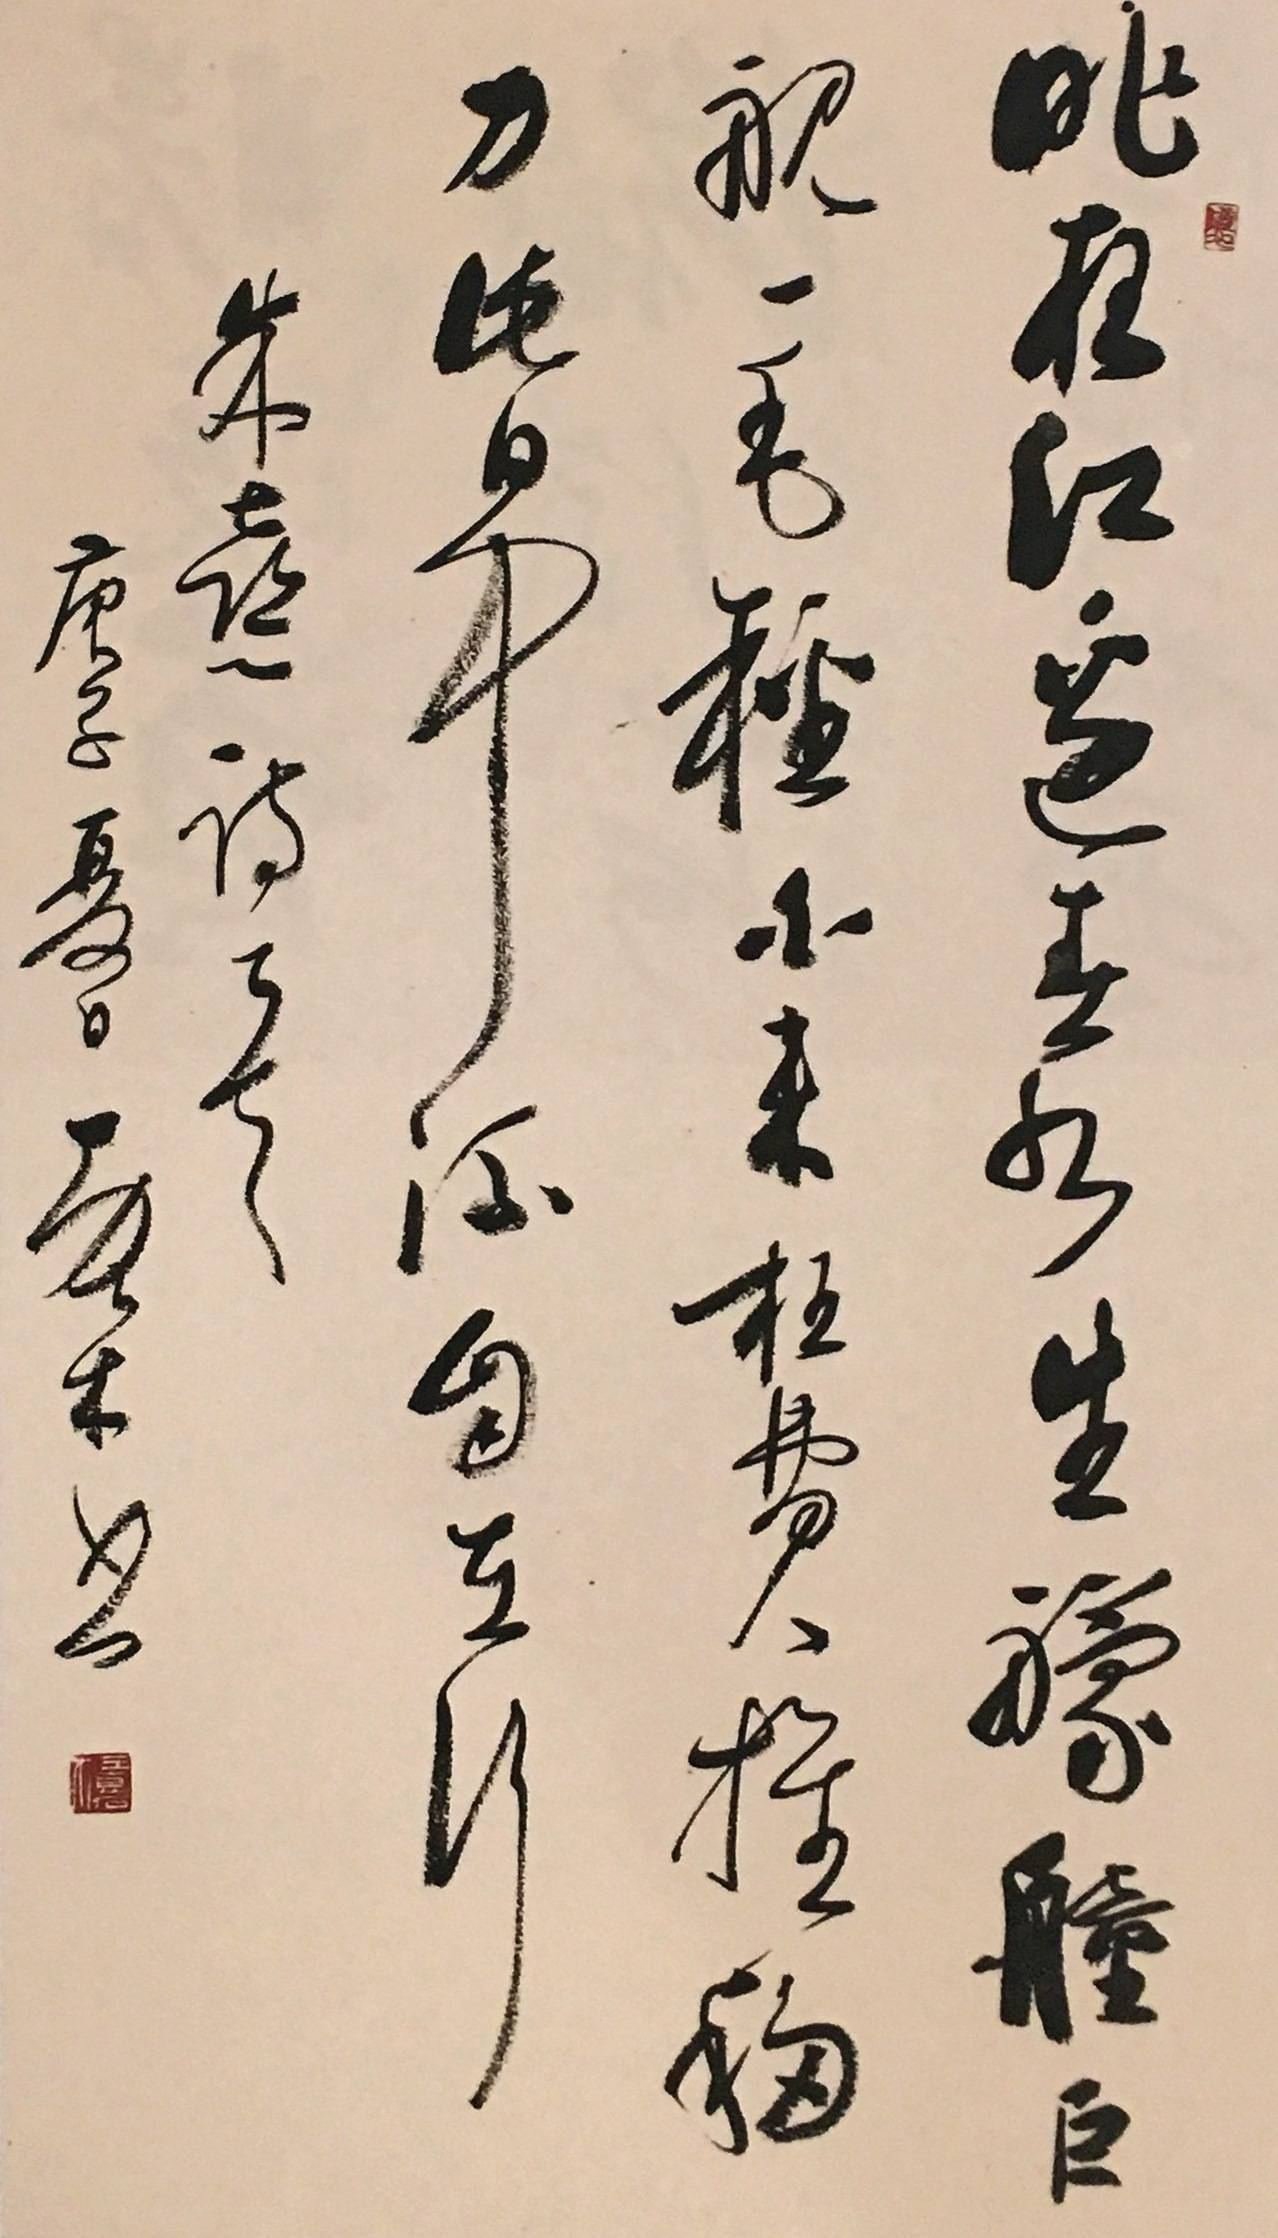 昨夜江邊春水生艨艟巨
舰一毛輕向来枉費推移
力此日中流自在行
朱熹詩
庚子夏日木書